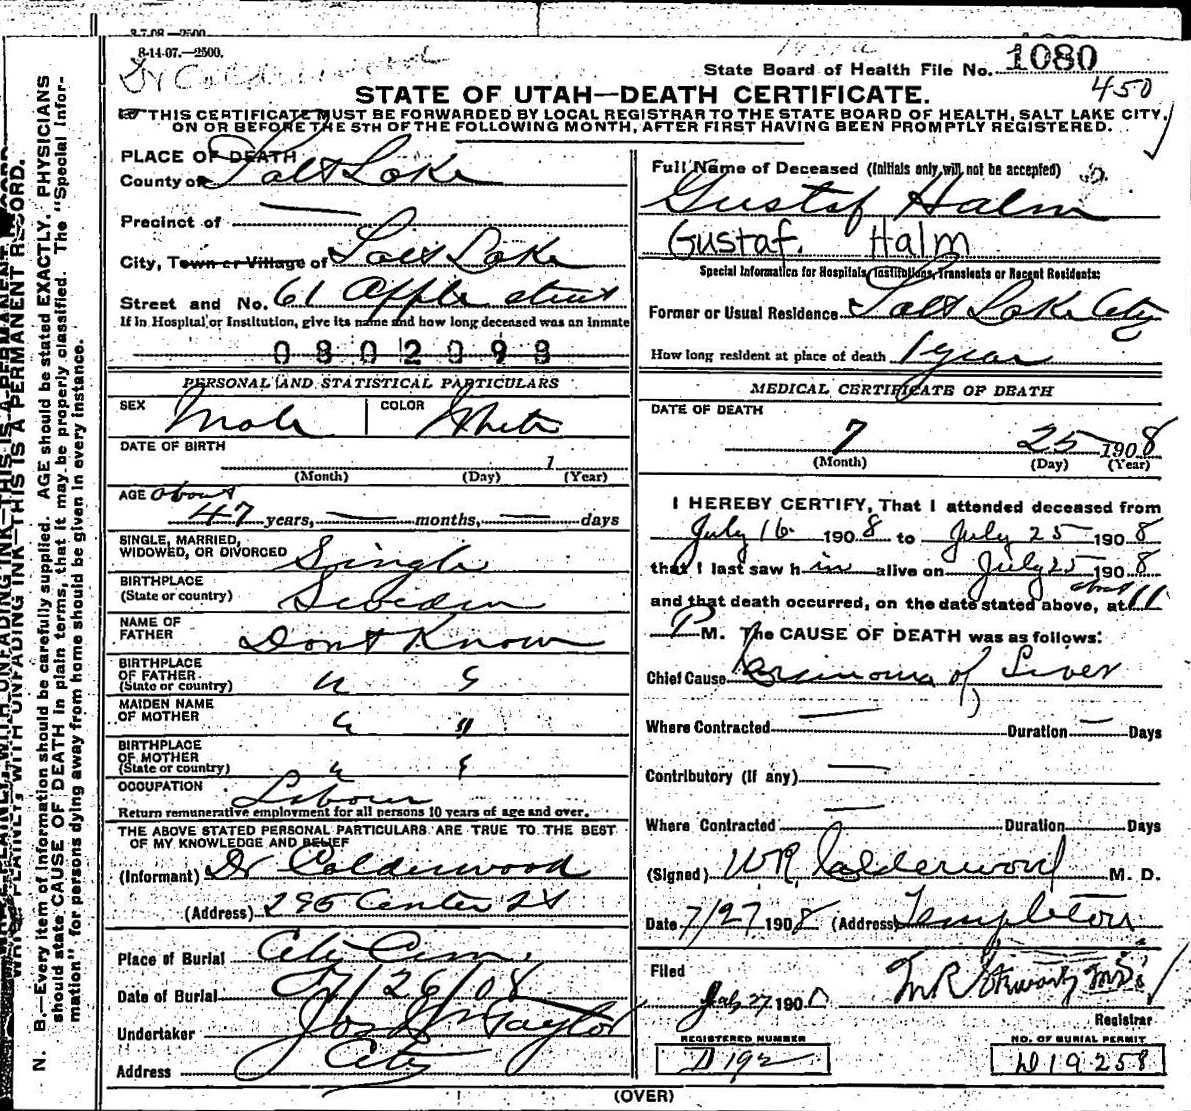 3-7-08-2500
8-14-07.—2500.
Dr Calderwood
State Board of Health File No. 1080
450
STATE OF UTAH—DEATH CERTIFICATE.
THIS CERTIFICATE MUST BE FORWARDED BY LOCAL REGISTRAR TO THE STATE BOARD OF HEALTH, SALT LAKE CITY,
ON OR BEFORE THE 5TH OF THE FOLLOWING MONTH, AFTER FIRST HAVING BEEN PROMPTLY REGISTERED.
PLACE OF DEATH
County of Salt Lake
Precinct of —
City, Town or Village of Salt Lake
Street and No. 61 Apple street
If in Hospital or Institution, give its name and how long deceased was an inmate
0802098
PERSONAL AND STATISTICAL PARTICULARS
SEX Male COLOR White
DATE OF BIRTH
1
(Month) (Day) (Year)
AGE about
47 years, — months, — days
SINGLE, MARRIED,
WIDOWED, OR DIVORCED Single
BIRTHPLACE
(State or country) Sweden
NAME OF
FATHER Dont Know
BIRTHPLACE
OF FATHER
(State or country) " "
MAIDEN NAME
OF MOTHER " "
BIRTHPLACE
OF MOTHER
(State or country) " "
OCCUPATION Labour
Return remunerative employment for all persons 10 years of age and over.
THE ABOVE STATED PERSONAL PARTICULARS ARE TRUE TO THE BEST
OF MY KNOWLEDGE AND BELIEF
(Informant) Dr Calderwood
(Address) 295 Center St
Place of Burial City Cem.
Date of Burial 7/26/08
Undertaker Jos Wm Taylor
Address City
Full Name of Deceased (Initials only will not be accepted)
Gustaf Halm
Gustaf. Halm
Special Information for Hospitals, Institutions, Transients or Recent Residents:
Former or Usual Residence Salt Lake City
How long resident at place of death 1 year
MEDICAL CERTIFICATE OF DEATH
DATE OF DEATH
7 25 1908
(Month) (Day) (Year)
I HEREBY CERTIFY, That I attended deceased from
July 16 1908 to July 25 1908
that I last saw him alive on July 25 1908
and that death occurred, on the date stated above, at about 11
P M. The CAUSE OF DEATH was as follows:
Chief Cause Carsinoma of Liver
Where Contracted — Duration — Days
Contributory (if any) —
Where Contracted — Duration Days
(Signed) W R Calderwood M. D.
Date 7/27 1908 (Address) Templeton
Filed
July 27 1908 M.D.
Registrar
REGISTERED NUMBER
D 192
NO. OF BURIAL PERMIT
D19258
(OVER)
WRITE PLAINLY, WITH UNFADING INK—THIS IS A PERMANENT RECORD.
N. B.—Every item of information should be carefully supplied. AGE should be stated EXACTLY. PHYSICIANS
should state CAUSE OF DEATH in plain terms, that it may be properly classified. The "Special Infor-
mation" for persons dying away from home should be given in every instance.